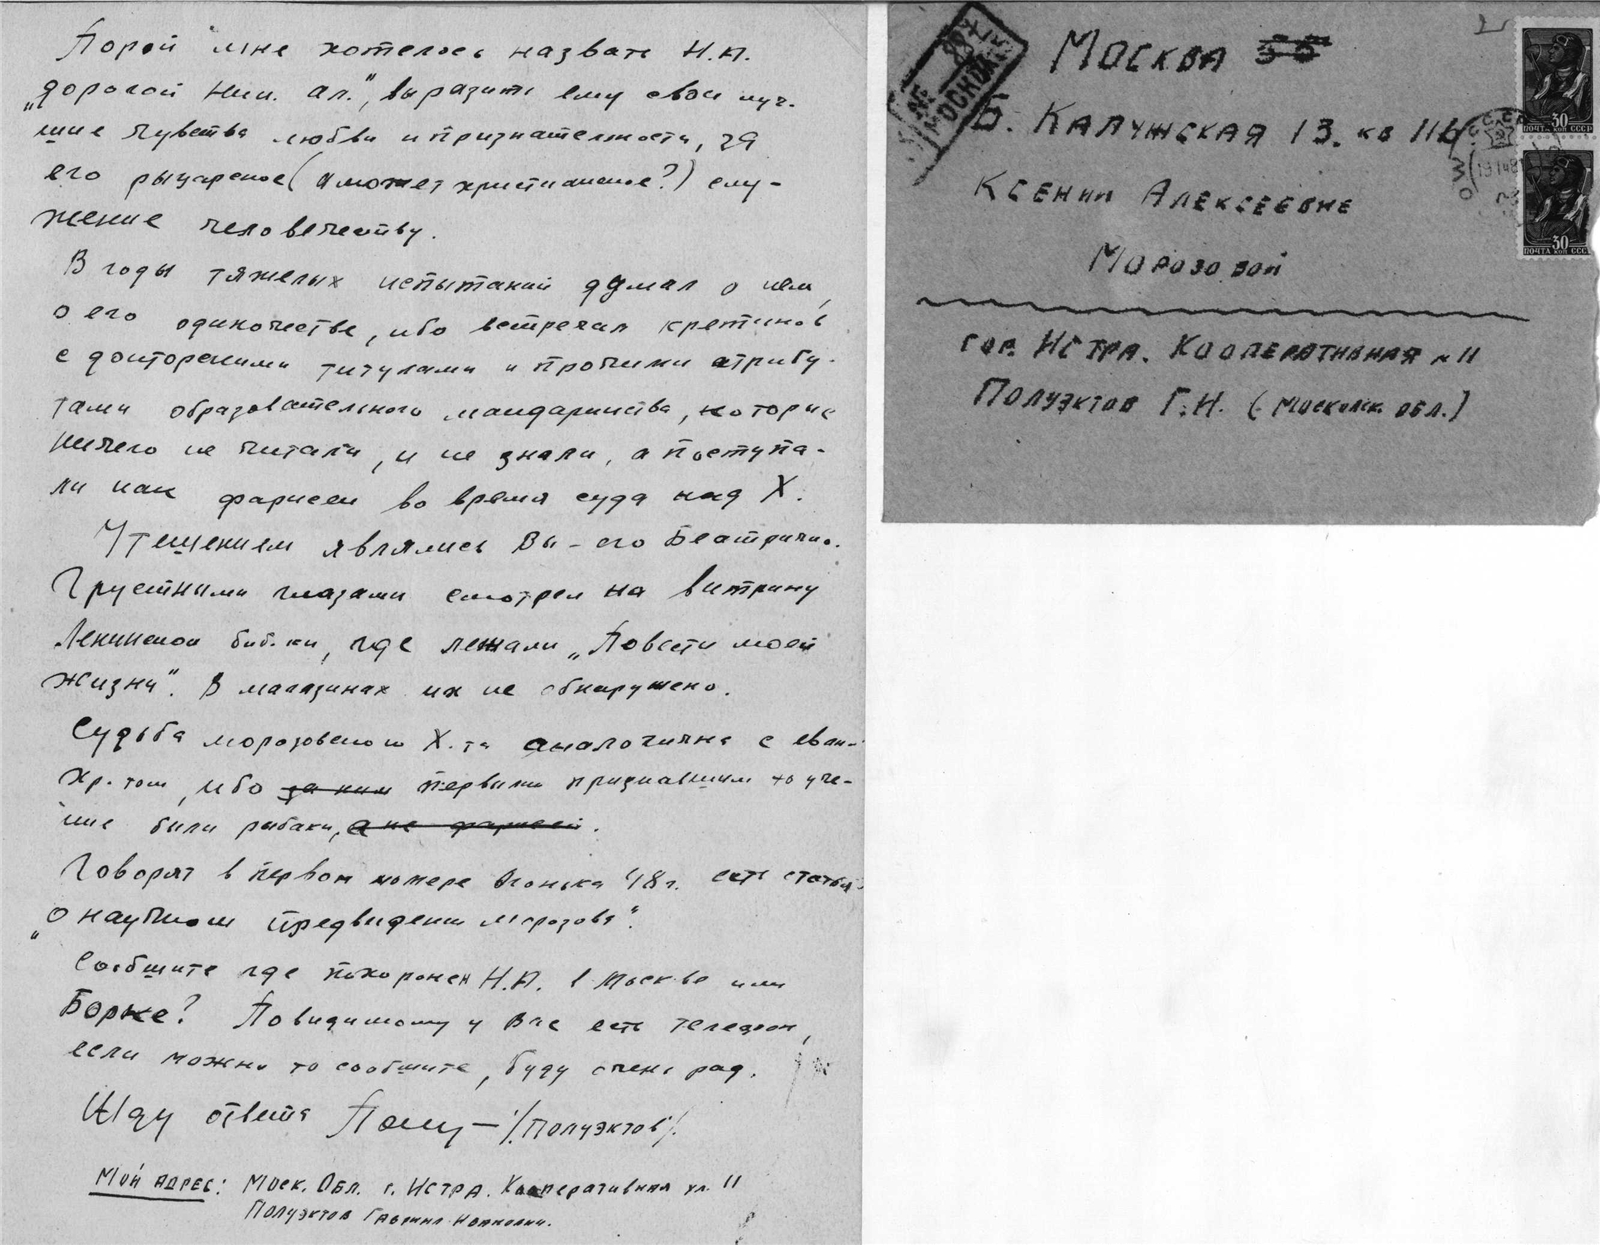 Порой мне хотелось назвать Н.А.
„дорогой Ник. Ал.", выразить ему свои луч-
шие чувства любви и признательности, за
его рыцарское (а может христианское?) слу-
жение человечеству.
В годы тяжелых испытаний думал о нем,
о его одиночестве, ибо встречал кретинов
с докторскими титулами и прочими атрибу-
тами образовательного мандаринства, которые
ничего не читали, и не знали, а поступа-
ли как фарисеи во время суда над Х.
Утешением являлись Вы – его Беатриче.
Грустными глазами смотрел на витрину
Ленинской биб-ки, где лежали „Повести моей
жизни". В магазинах их не обнаружено.
Судьба морозовского Х-та аналогична с еван-
Хр-том, ибо за ним первыми признавшим то уче-
ние были рыбаки, а не фарисеи.
Говорят в первом номере Огонька 48 г. есть статья
„О научном предвидении Морозова".
Сообщите где похоронен Н.А. в Москве или
Борке? Повидимому у Вас есть телефон,
если можно то сообщите, буду очень рад.
Жду ответа Полу– /Полуэктов/.
Мой адрес: Моск. Обл. г. Истра. Кооперативная ул. 11
Полуэктов Гавриил
Москва
Б. Калужская 13. кв 116
Ксении Алексеевне
Морозовой
гор. Истра. Кооперативная № 11
Полуэктов Г.И. (Московск. обл.)
30
ПОЧТА КОП СССР
30
ПОЧТА КОП СССР